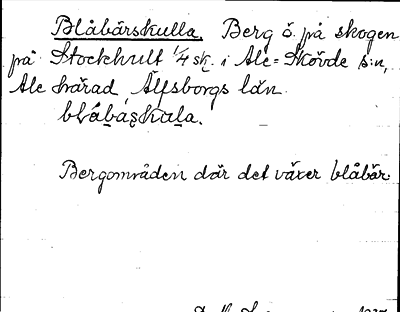 Blåbärskulla. Berg ö. på skogen
på Stockhult 1/4 sk. i Ale-Skövde s:n,
Ale härad, Älfsborgs län.
blåbäşkula.
Bergområden där det växer blåbär